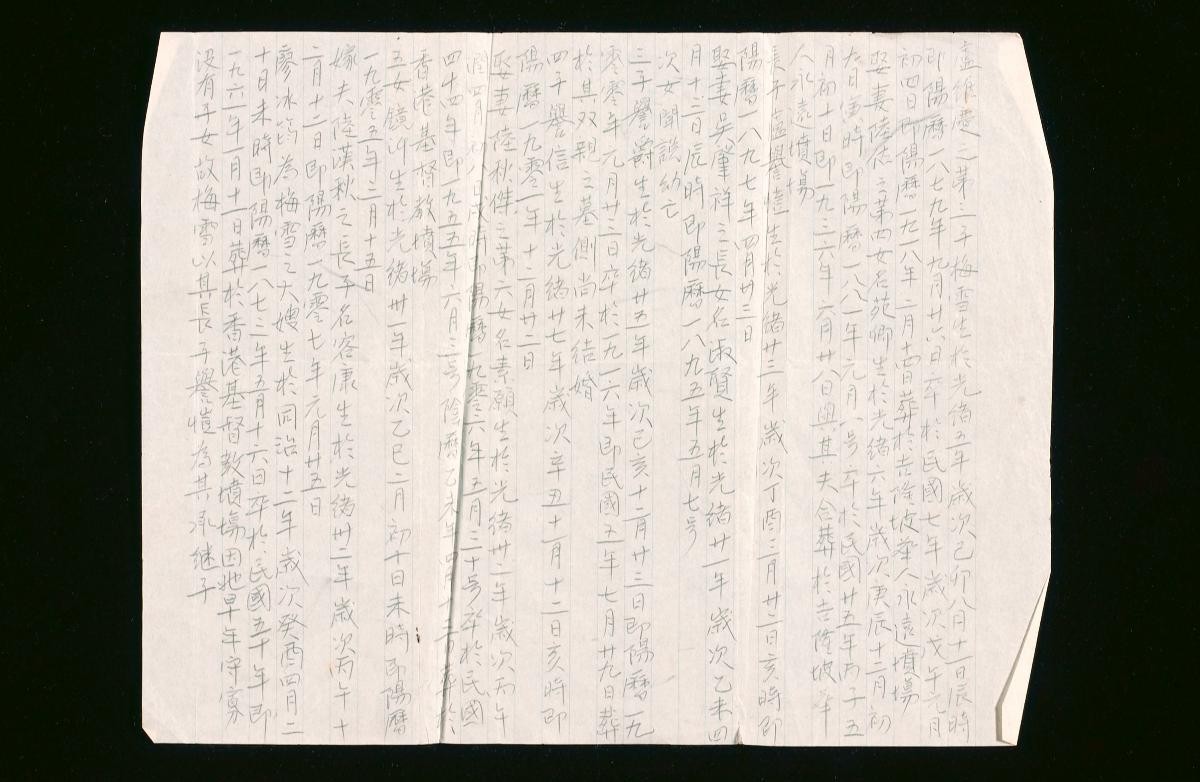 盧維慶之第二子梅雪生於光緒五年歲次己卯八月十一日辰時
即陽曆一八七九年九月廿六日卒於民國七年歲次戊午元月
初四日即陽曆一九一八年二月十四日葬於吉隆坡華人永遠墳場
娶妻陸 之第四女名苑卿生於光緒六年歲次庚辰十二月初
九日 時即陽曆一八八一年元月八号卒於民國廿五年丙子五
月初十日即一九三六年六月廿八日與其夫合葬於吉隆坡華
人永遠墳場
長子盧譽愷生於光緒廿三年歲次丁酉三月廿二日亥時即
陽曆一八九七年四月廿三日
娶妻吳肇祥之長女名淑賢生於光緒廿一年歲次乙未四
月十三日辰時即陽曆一八九五年五月七号
次女閏 幼亡
三子譽爵生於光緒廿五年歲次己亥十二月廿三日即陽曆一九
零零年元月廿三日卒於一九一六年即民國五年七月廿九日葬
於其双親之墓側尚未結婚
四子譽信生於光緒廿七年歲次辛丑十一月十二日亥時即
陽曆一九零一年十二月廿二日
娶妻陸秋傑之第六女名素願生於光緒卅二年歲次丙午
閏四月 八日戌時即陽曆一九零六年五月三十号卒於民國
四十四年即一九五五年六月三号陰曆乙未年四月十三日葬於
香港基督教墳場
五女鏡 生於光緒卅一年歲次乙巳二月初十日未時即陽曆
一九零五年三月十五日
嫁夫陸漢秋之長子名容康生於光緒卅二年歲次丙午十
二月十二日即陽曆一九零七年元月廿五日
廖冰筠為梅雪之大嫂生於同治十二年歲次癸酉四月二
十日未時即陽曆一八七三年五月十六日卒於民國五十年即
一九六一年一月十一日葬於香港基督教墳場因她早年守寡
没有子女故梅雪以其長子譽愷為其承继子